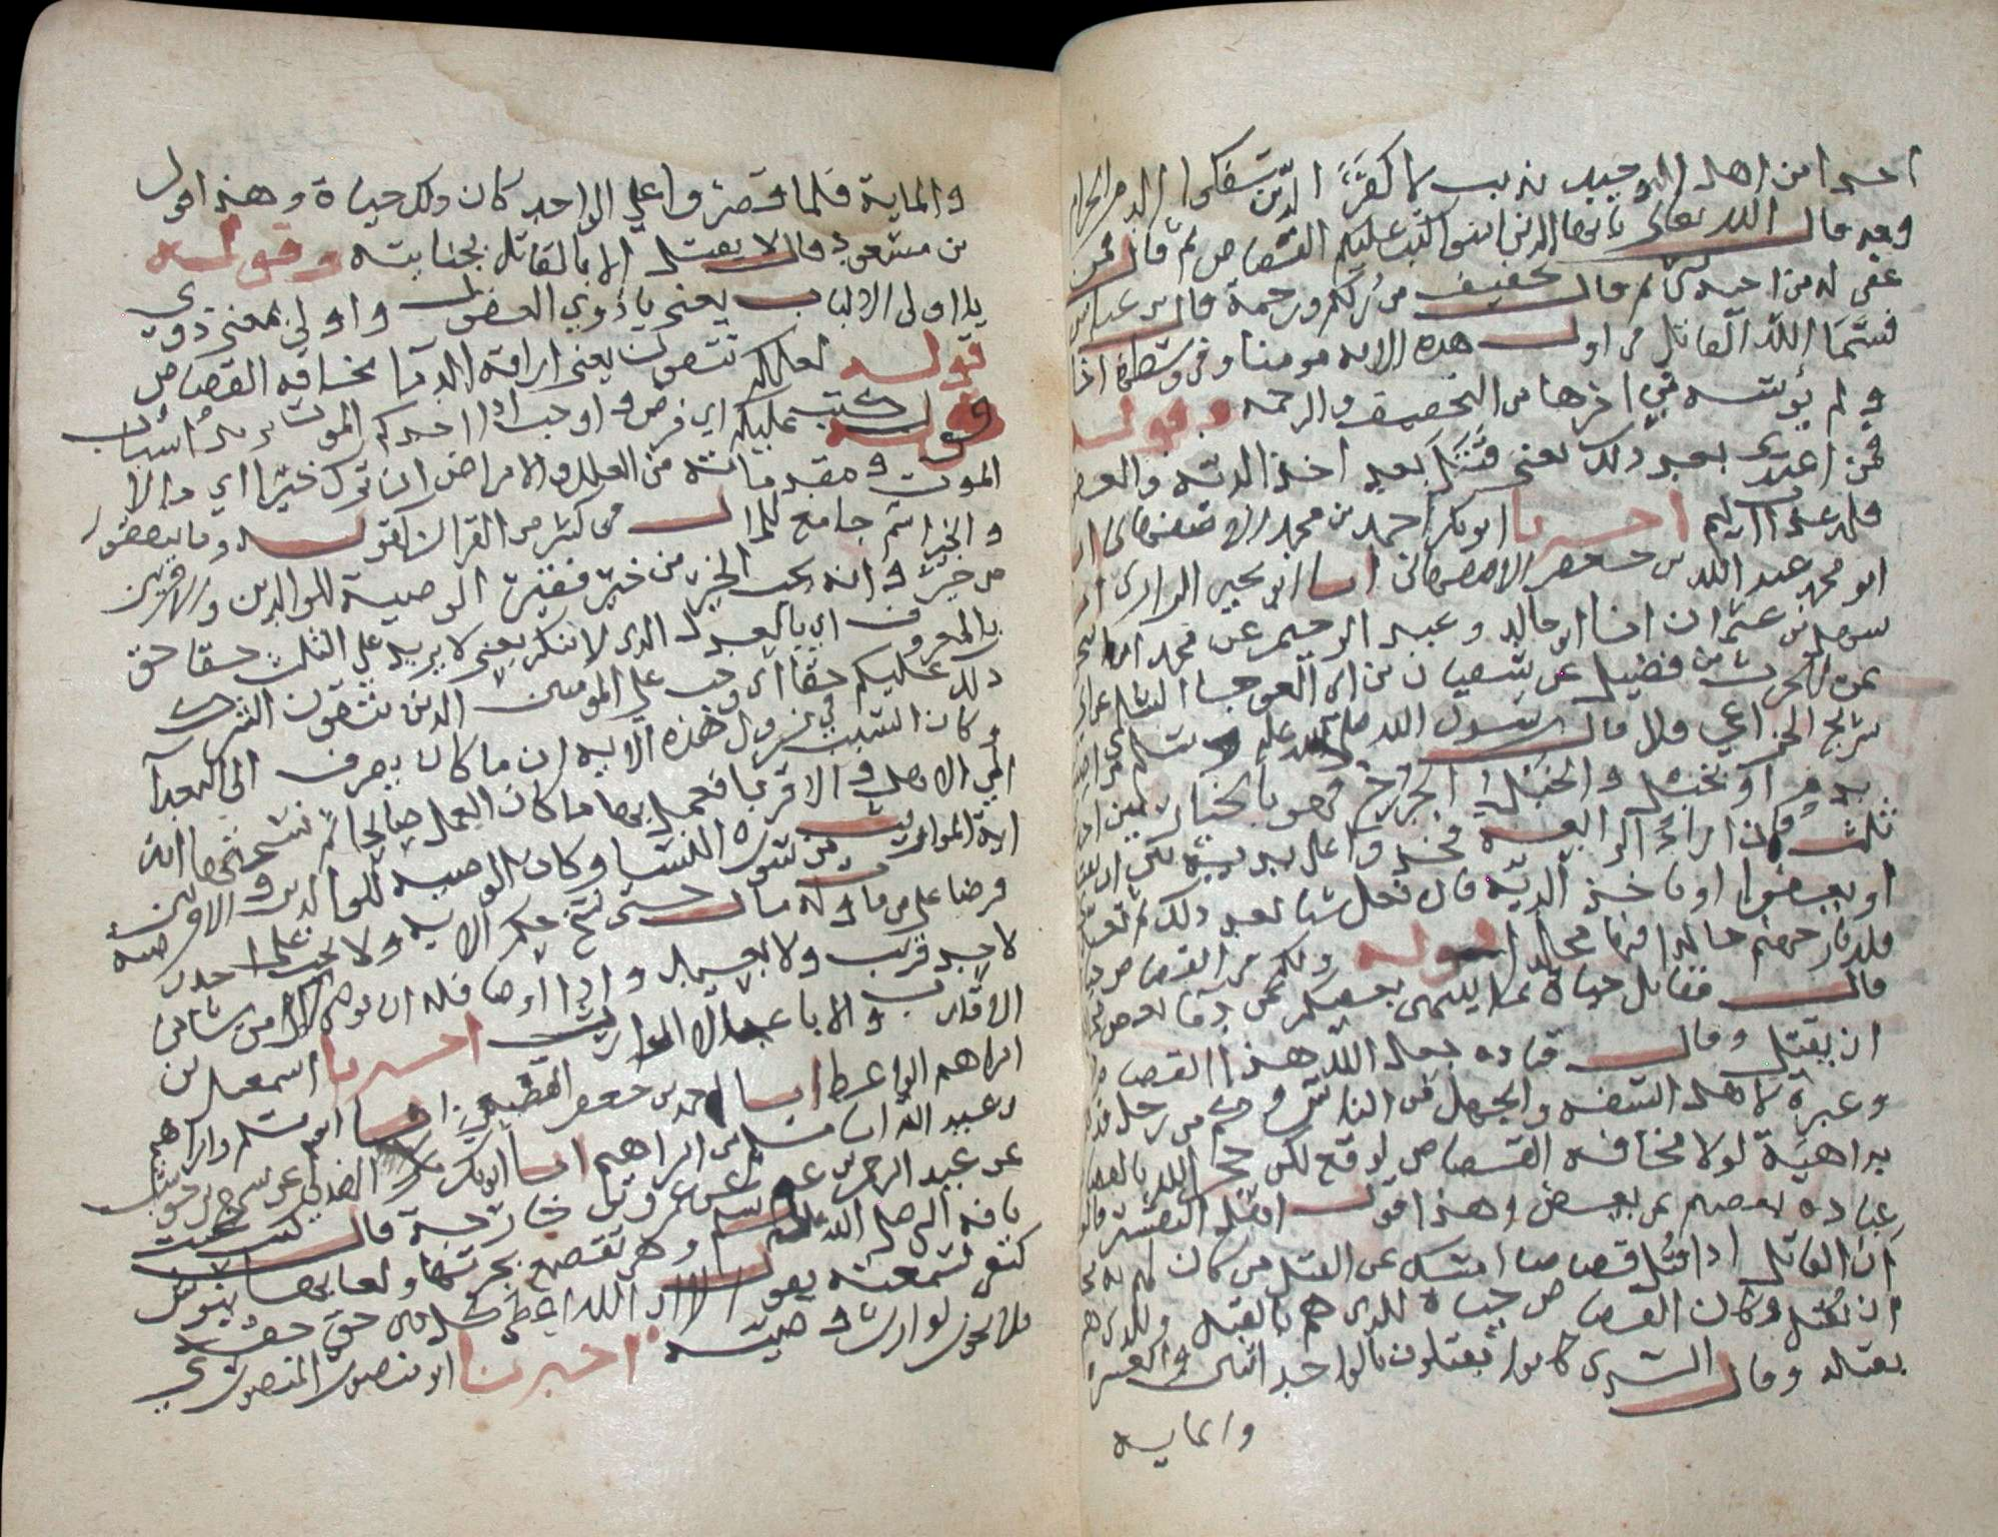 احدا من اهل التوحيد بذنب لا كفر الذين سفكوا الدم الحرام
وقد قال الله تعالى يا ايها الذين امنوا كتب عليكم القصاص ثم قال فمن
عفي له من اخيه شي ثم قال تخفيف من ربكم ورحمة قال بن عباس
فسما الله القاتل في اول هده الايه مومنا وفي وسطها اخا
ولم يويسه في اخرها من التخفيف والرحمه وقوله
فمن اعتدى بعد ذلك يعني قتل بعد اخذ الدية والعفو
فله عذاب اليم اخبرنا ابو بكر احمد بن محمد الاصفهاني انا
ابو محمد عبد الله بن جعفر الاصبهاني انا ابو يحيى الرازي انا
سهل بن عثمان انا ابو خالد وعبد الرحيم عن محمد بن اسحق
عن الحرث بن فضيل عن سفيان بن ابي العوجا السلمي عن ابي
شريح الخزاعي قال قال رسول الله صلى الله عليه وسلم من اصيب
بدم او بخبل والخبل الجراح فهو بالخيار بين احد
ثلث فان اراد الرابعه فخذوا على يديه بين ان يقتص
او يعفوا او ياخذ الديه فان فعل شيا بعد ذلك ثم تعدا
فله نار جهنم خالدا فيها مخلدا قوله ولكم في القصاص حياة
قال مقاتل حياة بما ينتهي بعضكم عن دما بعض
ان يقتل وقال قتاده جعل الله هذا القصاص
وعبرة لاهل السفه والجهل من الناس وكم من رجل قد هم
بداهية لولا مخافه القصاص لوقع لكن حجز الله بالقصاص
عباده بعضهم عن بعض وهذا قول اكثر المفسرين قالوا
ان القاتل اذا قتل قصاصا امسك عن القتل من كان يهم به
ان يقتل وكان القصاص حياة للذي هم بالقتل وللذي هم
بقتله وقال السدي كانوا يقتلون بالواحد اثنين والعشرة
والمايه
والماية فلما قصروا على الواحد كان ذلك حياة وهذا قول
بن مسعود قال لا يقتل الا بالقاتل بجنايته وقوله
يا اولى الالباب يعني يا ذوي العقول واولي بمعنى ذوي
قوله لعلكم تتقون يعني اراقه الدما مخافه القصاص
قوله كتب عليكم اي فرض واوجب اذا حضر احدكم الموت يريد اسباب
الموت ومقدماته من العلل والامراض ان ترك خيرا اي مالا
والخير اسم جامع للمال في كثير من القران كقوله وما تنفقوا
من خير وانه لحب الخير من خير فقير الوصية للوالدين والاقربين
بالمعروف اي بالعدل الذي لا ينكر يعني لا يزيد على الثلث حقا حق
ذلك عليكم حقا اي وجب على المومنين الذين يتقون الشرك
وكان السبب في نزول هذه الايه ان ما كان يصرف الى البعدا
الى الاهل والاقربا فعمل بها ما كان العمل صالحا ثم نسختها اية
اية المواريث في سورة النسا وكان الوصيه للوالدين والاقربين
فرضا على من مات وله مال حتى نسخ حكم الايه ولا يجب على احد وصيه
لا لبعيد قريب ولا بعيد واذا اوصا فله ان يوصي لكل من شا من
الاقارب والاباعد الا الوارث اخبرنا اسمعيل بن
ابراهيم الواعظ انا احمد بن جعفر القطيعي انا ابو مسلم وابراهيم
بن عبد الله انا مسلم بن ابراهيم انا ابو بكر الهذلي عن شهر بن حوشب
عن عبد الرحمن بن غنم عن عمرو بن خارجة قال كنت تحت
ناقه النبي صلى الله عليه وسلم وهي تقصع بجرتها ولعابها ينوس
كتفي سمعته يقول الا ان الله اعطى كل ذي حق حقه
فلا يجوز لوارث وصيته اخبرنا ابو منصور المنصوري